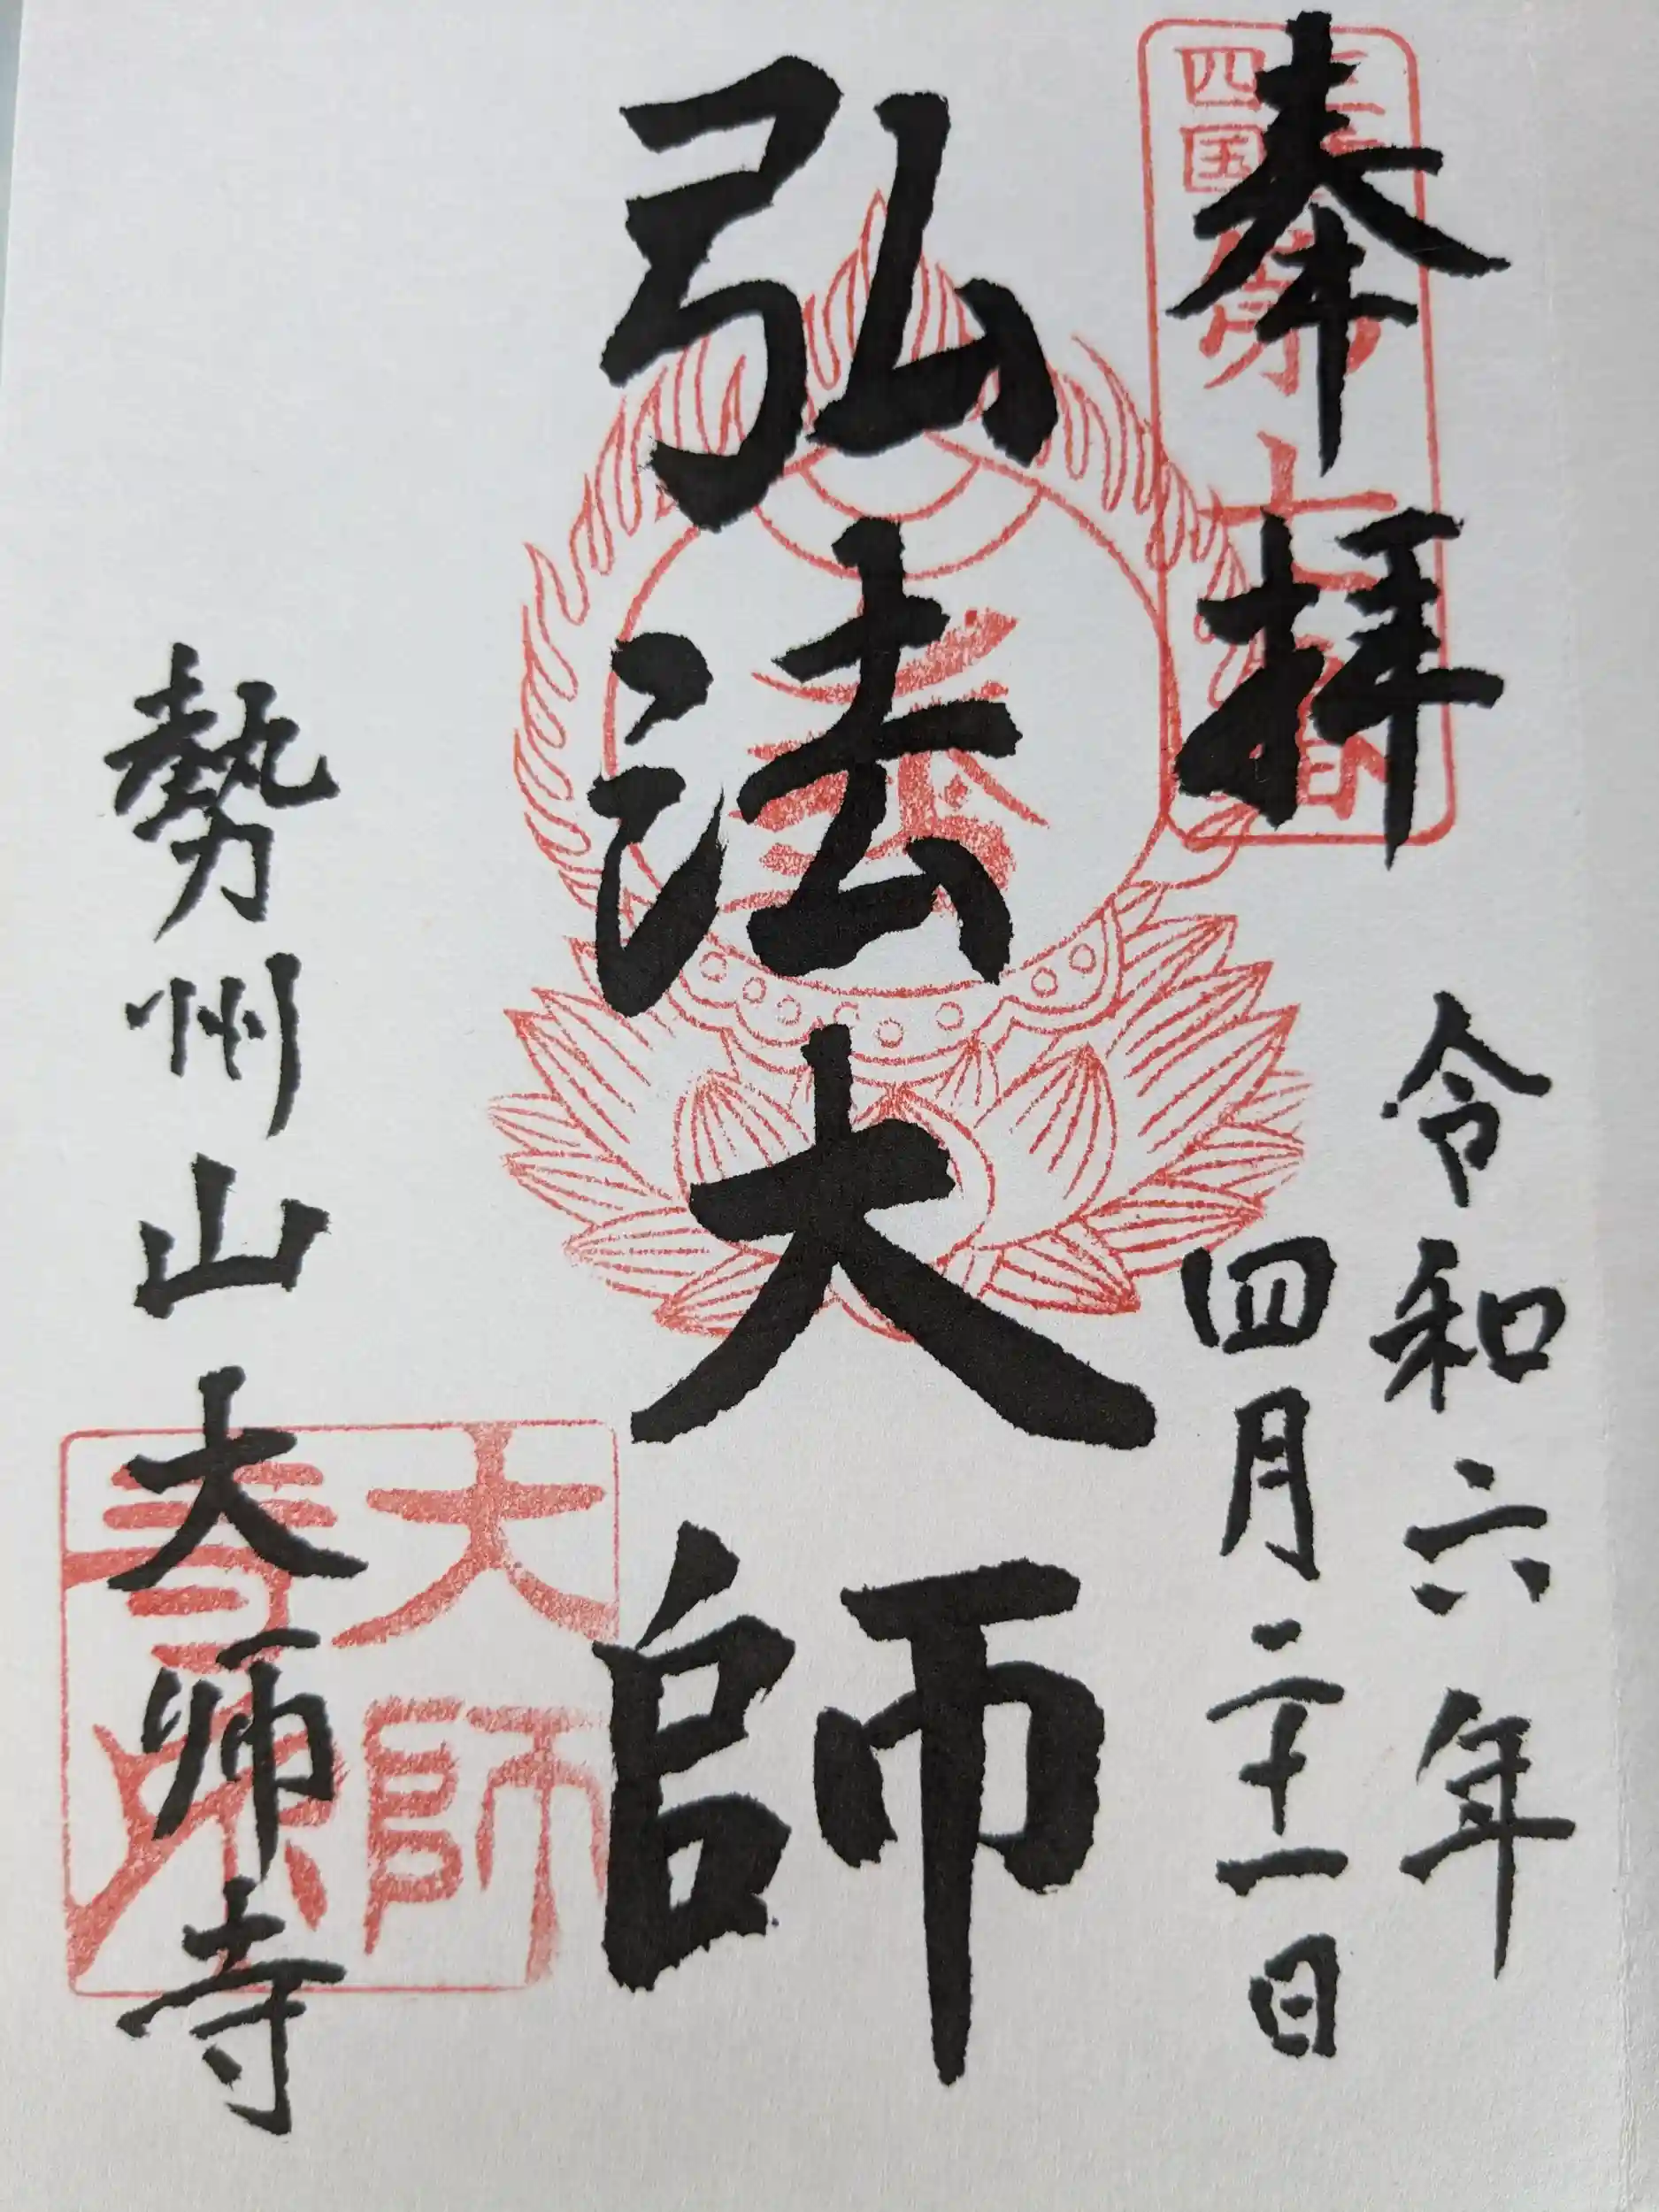 奉拝
令和六年
四月二十一日
弘法大師
勢州山大师寺
大師